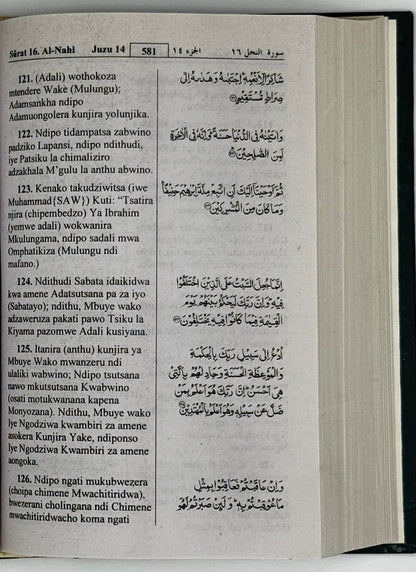 Sûrat 16. Al-Nahl Juzu 14 581 الجزء ١٤ سورة النحل ١٦
121. (Adali) wothokoza
mtendere Wake (Mulungu);
Adamsankha ndipo
Adamuongolera kunjira yolunjika.
شَاكِرًا لِّأَنْعُمِهِ ۚ اجْتَبَىٰهُ وَهَدَىٰهُ إِلَىٰ
صِرَاطٍ مُّسْتَقِيمٍ ﴿١٢١﴾
122. Ndipo tidampatsa zabwino
padziko Lapansi, ndipo ndithudi,
iye Patsiku la chimaliziro
adzakhala M'gulu la anthu abwino.
وَءَاتَيْنَٰهُ فِى الدُّنْيَا حَسَنَةً ۖ وَإِنَّهُۥ فِى الْءَاخِرَةِ
لَمِنَ الصَّٰلِحِينَ ﴿١٢٢﴾
123. Kenako takudziwitsa (iwe
Muhammad{SAW}) Kuti: “Tsatira
njira (chipembedzo) Ya Ibrahim
(yemwe adali) wokwanira
Mkulungama, ndipo sadali mwa
Omphatikiza (Mulungu ndi
mafano.)
ثُمَّ أَوْحَيْنَا إِلَيْكَ أَنِ اتَّبِعْ مِلَّةَ إِبْرَٰهِيمَ حَنِيفًا ۖ
وَمَا كَانَ مِنَ الْمُشْرِكِينَ ﴿١٢٣﴾
124. Ndithudi Sabata idaikidwa
kwa amene Adatsutsana pa za iyo
(Sabatayo); ndithu, Mbuye wako
adzaweruza pakati pawo Tsiku la
Kiyama pazomwe Adali kusiyana.
إِنَّمَا جُعِلَ السَّبْتُ عَلَى الَّذِينَ اخْتَلَفُوا
فِيهِ ۚ وَإِنَّ رَبَّكَ لَيَحْكُمُ بَيْنَهُمْ يَوْمَ
الْقِيَٰمَةِ فِيمَا كَانُوا فِيهِ يَخْتَلِفُونَ ﴿١٢٤﴾
125. Itanira (anthu) kunjira ya
Mbuye Wako mwanzeru ndi
ulaliki wabwino; Ndipo tsutsana
nawo mkutsutsana Kwabwino
(osati motukwanana kapena
Monyozana). Ndithu, Mbuye wako
Iye Ngodziwa kwambiri za amene
asokera Kunjira Yake, ndiponso
Iye Ngodziwa Kwambiri za amene
aongoka.
ادْعُ إِلَىٰ سَبِيلِ رَبِّكَ بِالْحِكْمَةِ
وَالْمَوْعِظَةِ الْحَسَنَةِ ۖ وَجَٰدِلْهُم بِالَّتِى
هِىَ أَحْسَنُ ۚ إِنَّ رَبَّكَ هُوَ أَعْلَمُ بِمَن
ضَلَّ عَن سَبِيلِهِ ۖ وَهُوَ أَعْلَمُ بِالْمُهْتَدِينَ ﴿١٢٥﴾
126. Ndipo ngati mukubwezera
(choipa chimene Mwachitiridwa),
bwezerani cholingana ndi Chimene
mwachitiridwacho koma ngati
وَإِنْ عَاقَبْتُمْ فَعَاقِبُوا بِمِثْلِ
مَا عُوقِبْتُم بِهِ ۖ وَلَئِن صَبَرْتُمْ لَهُوَ